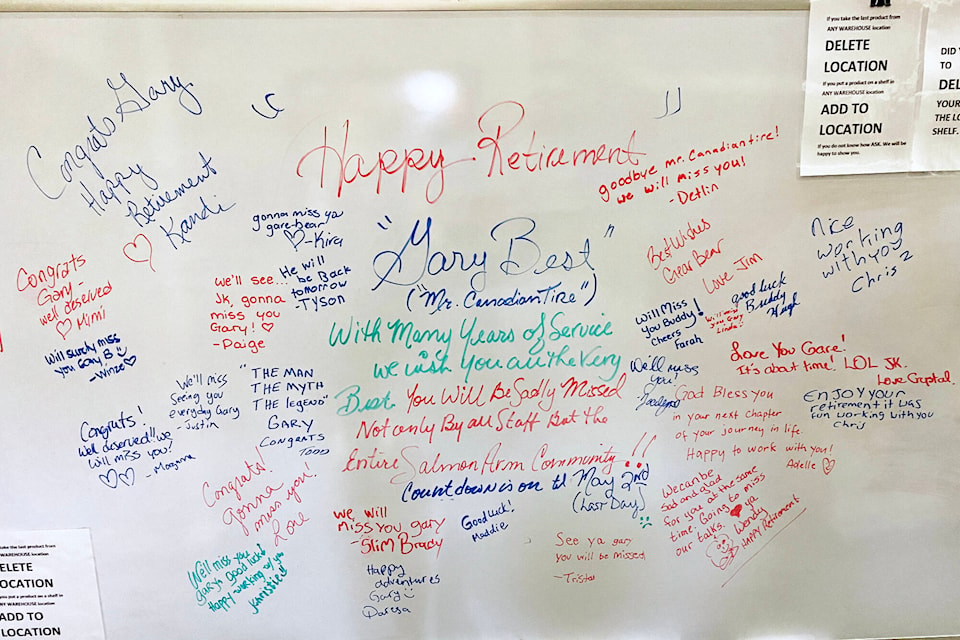 Congrats Gary
Happy
Retirement
Kandi
Happy Retirement
"Gary Best"
("Mr. Canadian Tire")
With Many Years of Service
we wish You all the Very
Best. You Will Be Sadly Missed
Not only By all Staff But the
Entire Salmon Arm Community!!
Countdown is on til May 2nd
(Last Day)
goodbye mr. Canadian tire!
we will miss you!
- Detlin
gonna miss ya
gare-bear
- Kira
He will
be Back
tomorrow
- Tyson
Congrats
Gary -
well deserved
Mimi
We'll see...
JK, gonna
miss you
Gary!
- Paige
Will surely miss
you Gary, B
- Winze
We'll miss
Seeing you
everyday Gary
- Justin
"THE MAN
THE MYTH
THE legend"
GARY
CONGRATS
TODD
Congrats!
Well deserved!! We
Will miss you!
- Morgana
Congrats!
Gonna
miss you!
Love
We'll miss you
gary! good luck!
Happy working w/ you
Khristie
we will
miss you gary
- Slim Brady
Happy
adventures
Gary
Daresa
Good luck!
Maddie
See ya gary
you will be missed
- Tristan
Best Wishes
Gear Bear
Love Jim
Will Miss
You Buddy!
Cheers
Farah
Will miss
you Gary
Linda!
good luck
Buddy
Hugh
Nice
working
with you
Chris 2
We'll miss
you!
Love You Gare!
It's about time! LOL JK.
Love Crystal.
ENJOY YOUR
retirement it was
fun working with you
Chris
God Bless you
in your next chapter
of your journey in life.
Happy to work with you!
Adelle
We can be
Sad and glad
for you at the same
time. Going to miss
our talks. ya
Wendy
Happy Retirement
If you take the last product from
ANY WAREHOUSE location
DELETE
LOCATION
If you put a product on a shelf in
ANY WAREHOUSE location
ADD TO
LOCATION
If you do not know how ASK. We will be
happy to show you.
DID
TO
DEL
YOUR
THE LO
SHELF.
take the last product from
WAREHOUSE location
ELETE
OCATION
you put a product on a shelf in
ANY WAREHOUSE location
ADD TO
LOCATION